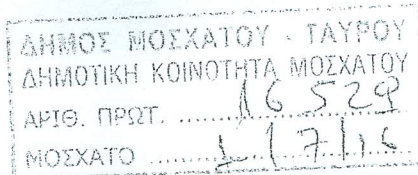 ΔΗΜΟΣ ΜΟΣΧΑΤΟΥ - ΤΑΥΡΟΥ
ΔΗΜΟΤΙΚΗ ΚΟΙΝΟΤΗΤΑ ΜΟΣΧΑΤΟΥ
ΑΡΙΘ. ΠΡΩΤ. ......16529
ΜΟΣΧΑΤΟ ......1/7/16